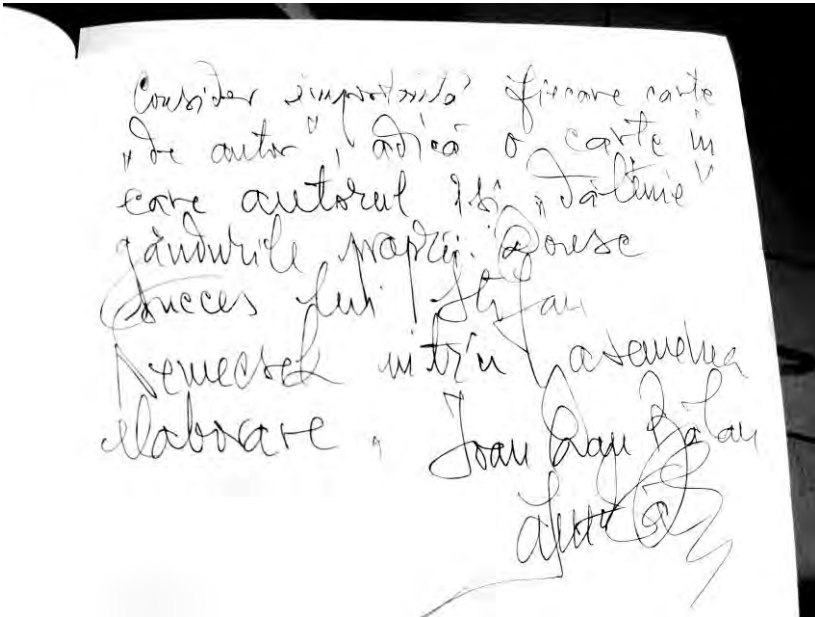 Consider importantă fiecare carte
„de autor”, adică o carte în
care autorul își „dăltuie”
gândurile proprii. Doresc
succes lui Ștefan
Nemecsek într'u asemenea
elaborare. Ioan Dan Bălan